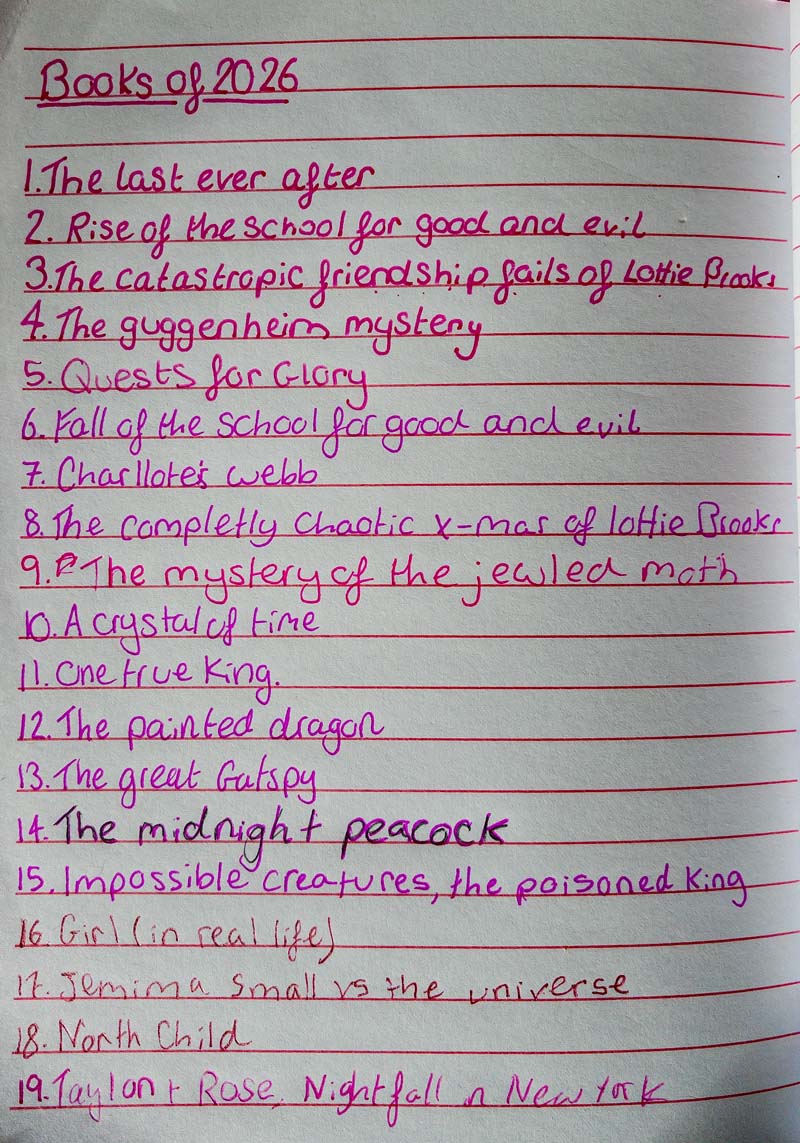 Books of 2026
1. The last ever after
2. Rise of the school for good and evil
3. The catastropic friendship fails of Lottie Brooks
4. The guggenheim mystery
5. Quests for Glory
6. Fall of the school for good and evil
7. Charllote's webb
8. The completly chaotic x-mas of lottie Brooks
9. The mystery of the jewled moth
10. A crystal of time
11. One true King.
12. The painted dragon
13. The great Gatspy
14. The midnight peacock
15. Impossible creatures, the poisoned King
16. Girl (in real life)
17. Jemima Small vs the universe
18. North Child
19. Taylor + Rose, Nightfall in New York